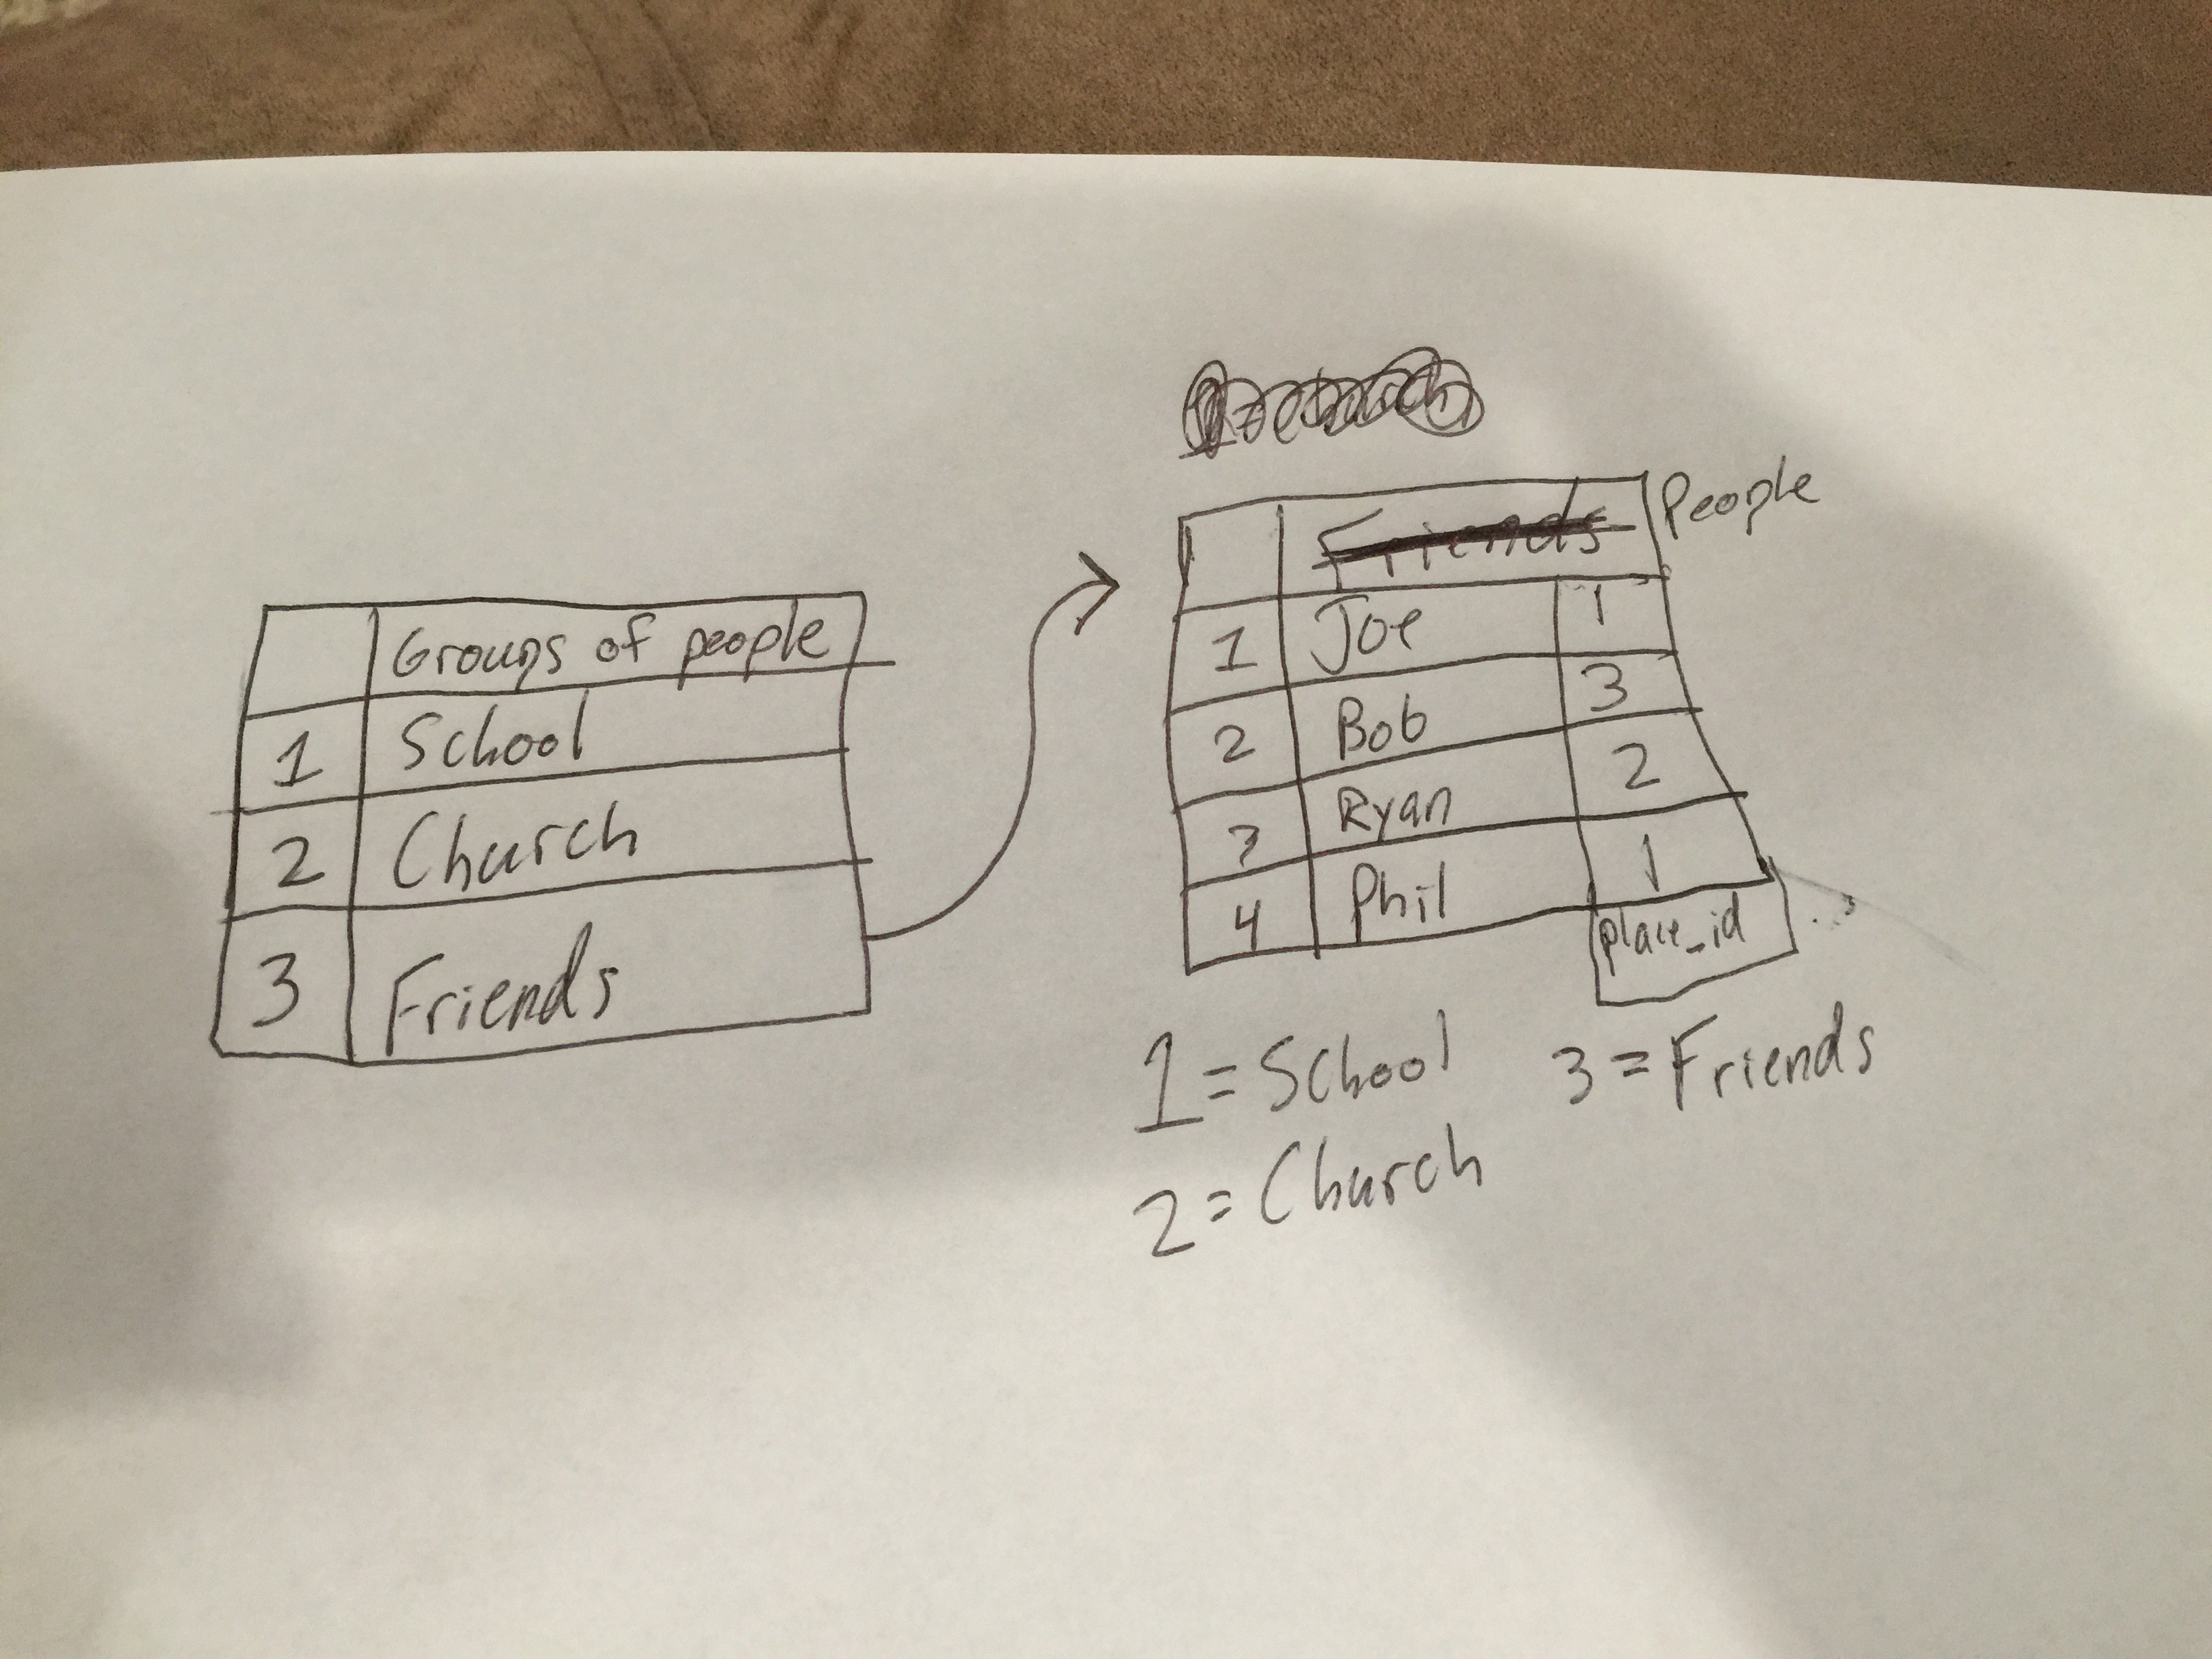 Groups of people
1 School
2 Church
3 Friends
Friends People
1 Joe 1
2 Bob 3
3 Ryan 2
4 Phil 1
place_id
1 = School 3 = Friends
2 = Church